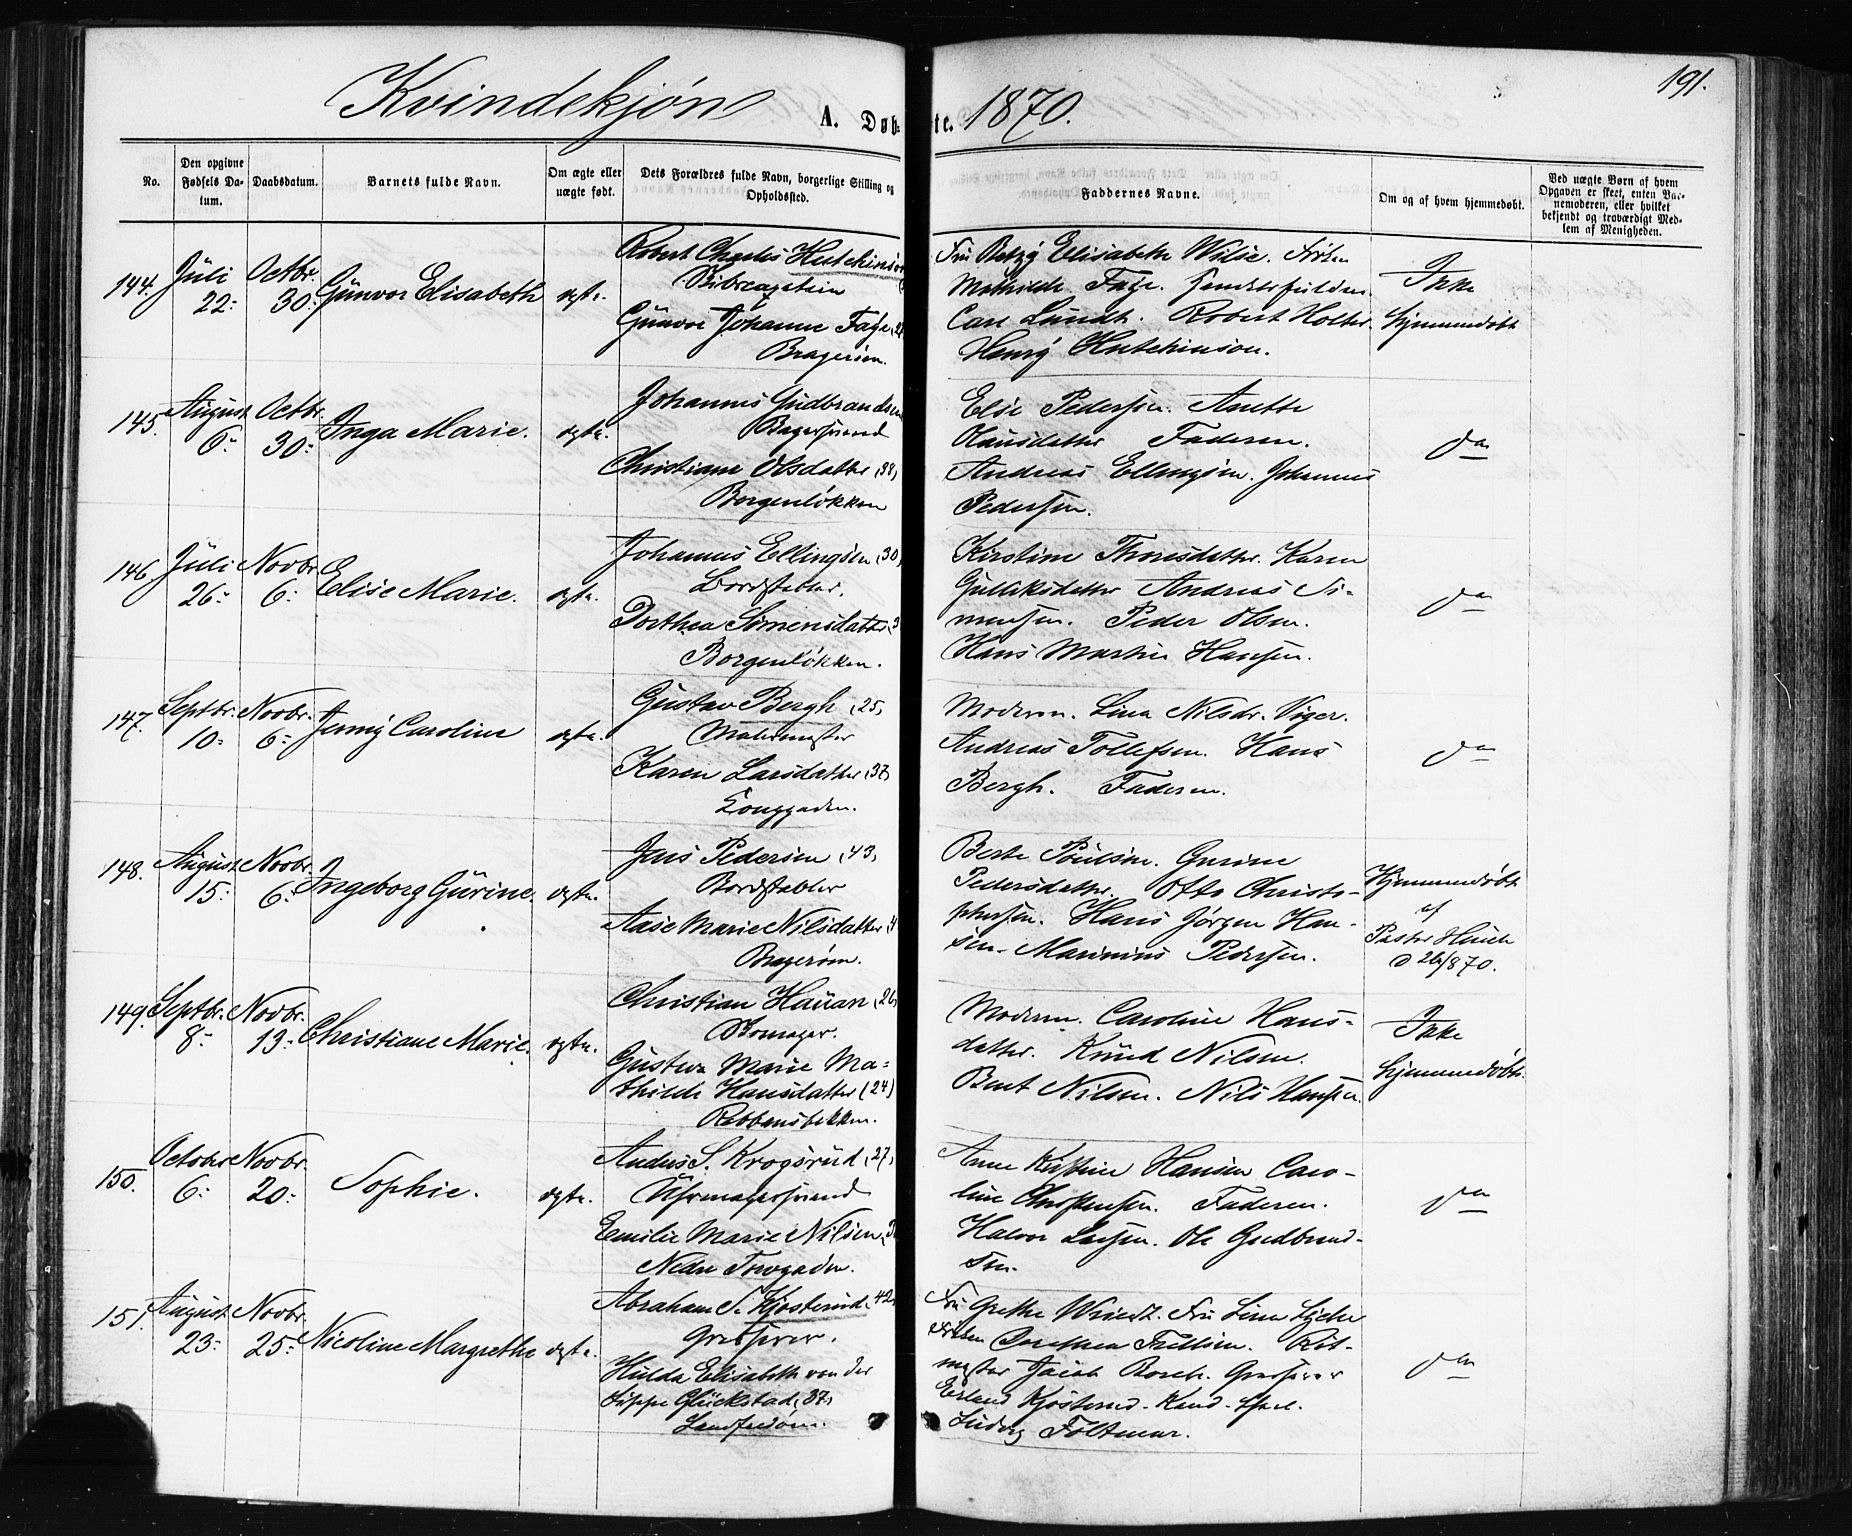 Kvindekjøn A. Døb- te. 1870. 191.
No.
Den opgivne Fødsels Da- tum.
Daabsdatum.
Barnets fulde Navn.
Om ægte eller uægte født.
Dets Forældres fulde Navn, borgerlige Stilling og Opholdssted.
Faddernes Navne.
Om og af hvem hjemmedøbt.
Ved uægte Børn af hvem Opgaven er skeet, enten Bar- nemoderen, eller hvilket bekjendt og troværdigt Med- lem af Menigheden.
144. Juli 22: Octbr. 30: Gunvor Elisabeth ægte.
Robert Charles Hutchinson
Gunvor Johanne Faye
Bragerøen.
Fru Betzy Elisabeth Wilse. Frøken
Mathilde Faye.
Carl Lundh. Robert Holter.
Henry Hutchinson.
Ikke
hjemmedøbt
145. August 6: Octbr. 30: Inga Marie. ægte.
Johannes Gudbrandsen
Bagersvend
Christiane Olsdatter (38)
Borgenløkken
Else Pedersen. Anette
Olausdatter Faderen.
Andreas Ellingsen. Johannes
Pedersen.
do
146. Juli 26: Novbr. 6: Elise Marie. ægte.
Johannes Ellingsen (30)
Bordstabler.
Dorthea Simensdatter
Borgenløkken.
Kirstine Thoresdatter. Karen
Gulliksdatter Andreas Si-
mensen. Peder Olsen.
Hans Martin Hansen.
do
147. Septbr. 10: Novbr. 6: Jenny Caroline ægte.
Gustav Bergh (25)
Malermester
Karen Larsdatter (37)
Konggaden.
Moderen. Lina Nilsdr. Viger.
Andreas Tollefsen. Hans
Bergh. Faderen.
do
148. August 15: Novbr. 6: Ingeborg Gurine. ægte.
Jens Pedersen (43)
Bordstabler
Aase Marie Nilsdatter
Bragerøen.
Berte Poulsen. Gurine
Pedersdatter. Otto Christo-
phersen. Hans Jørgen Han-
sen. Marinius Pedersen.
Hjemmedøbt
af
Pastor
149. Septbr. 8: Novbr. 13: Christiane Marie. ægte.
Christian Hauan (26)
Skomager.
Gustava Marie Ma-
thilde Hansdatter (24)
Moderen. Caroline Hans-
datter. Knud Nilsen.
Bent Nilsen. Nils Hansen.
Ikke
hjemmedøbt.
150. October 6: Novbr. 20: Sophie. ægte.
Anders S. Krogsrud (27)
Uhrmagersvend
Emilie Marie Nilsen
Nedre Torvgaden.
Anne Kirstine Hansen Caro-
line Christensen. Faderen.
Halvor Larsen. Ole Gudbrand-
sen.
do
151. August 23: Novbr. 25: Nicoline Margrethe ægte.
Abraham S. Kjøsterud (42)
Grosserer.
Hulda Elisabeth von der
Lippe Glückstad (37)
Fru Grethe Wriedt. Fru Lina Lyche
Frøken Dorothea Trellsen. Rit-
mester Jacob Borch. Grosserer
Erland Kjøsterud. Kand.
Ludvig Foltmar.
do